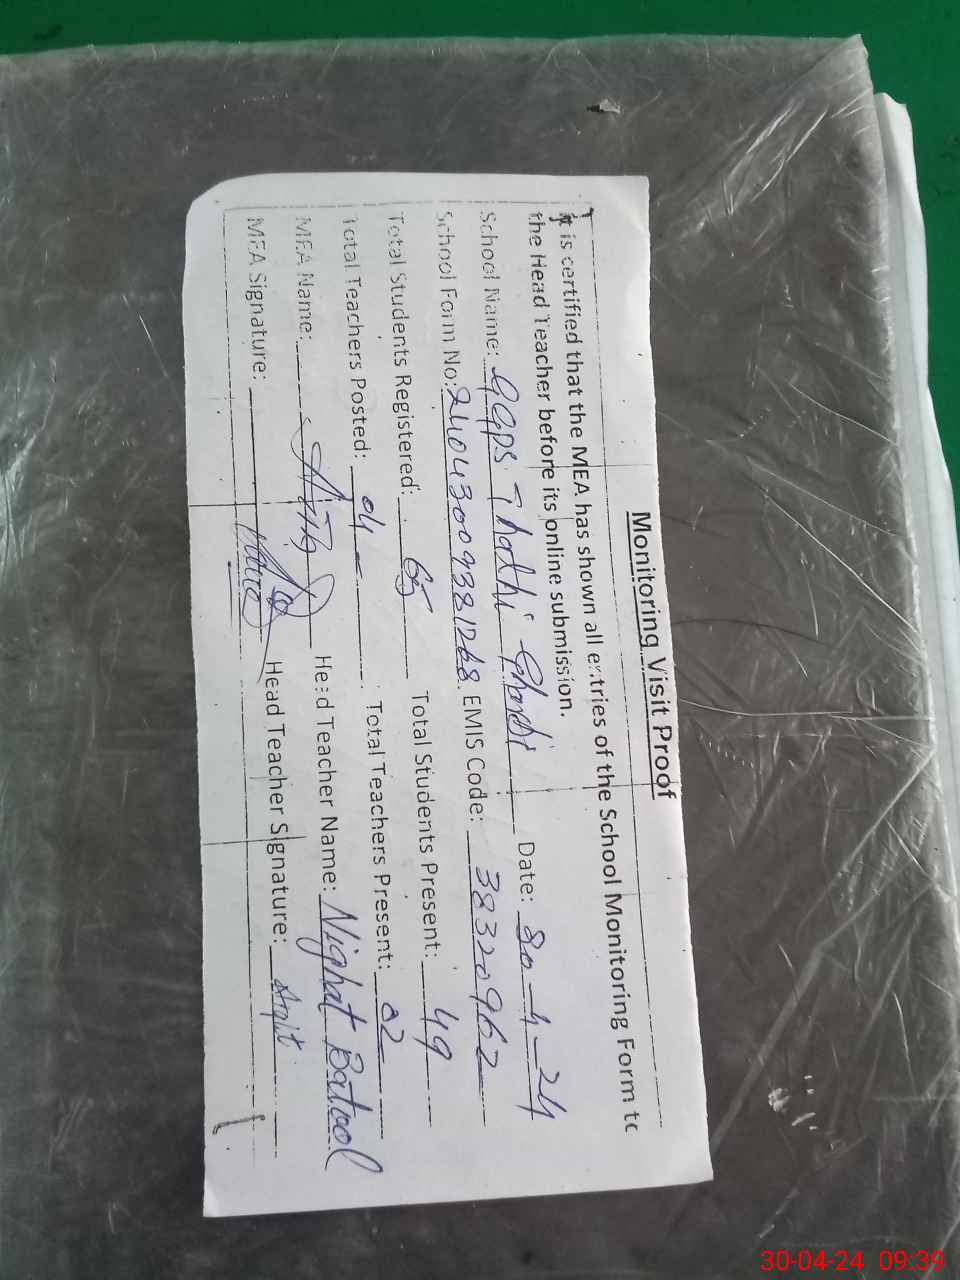 Monitoring Visit Proof
It is certified that the MEA has shown all entries of the School Monitoring Form to
the Head Teacher before its online submission.
School Name: GGPS Date: 30-4-24
School Form No: EMIS Code: 38320962
Total Students Registered: 65 Total Students Present: 49
Total Teachers Posted: 04 Total Teachers Present: 02
MEA Name: Head Teacher Name: Nighat Batool
MEA Signature: Head Teacher Signature:
30-04-24 09:39